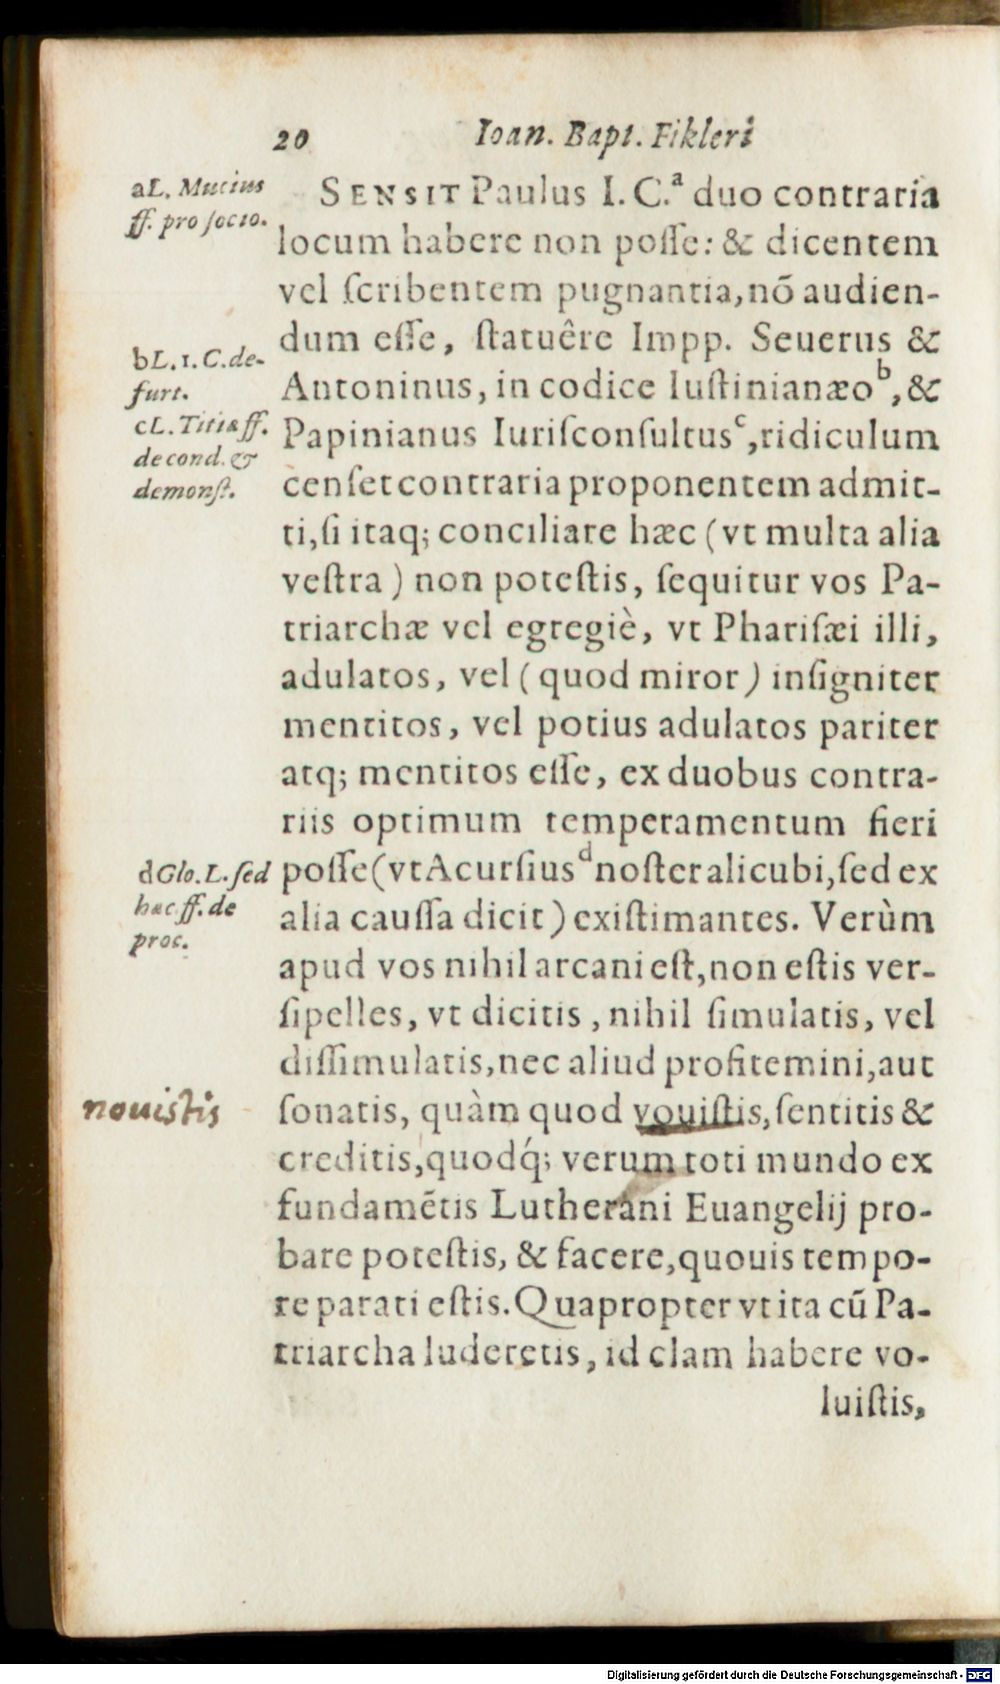 20 Ioan. Bapt. Fikleri
aL. Mucius
ff. pro ſocio.
SENSIT Paulus I.C.ᵃ duo contraria
locum habere non poſſe: & dicentem
vel ſcribentem pugnantia, nõ audien-
dum eſſe, ſtatuêre Impp. Seuerus &
bL. 1. C. de-
furt.
Antoninus, in codice Iuſtinianæoᵇ, &
cL. Titiæ ff.
de cond. &
demonſt.
Papinianus Iuriſconſultusᶜ, ridiculum
cenſet contraria proponentem admit-
ti, ſi itaq; conciliare hæc (vt multa alia
veſtra) non poteſtis, ſequitur vos Pa-
triarchæ vel egregiè, vt Phariſæi illi,
adulatos, vel (quod miror) inſigniter
mentitos, vel potius adulatos pariter
atq; mentitos eſſe, ex duobus contra-
riis optimum temperamentum fieri
dGlo. L. ſed
hæc ff. de
proc.
poſſe (vt Acurſiusᵈ noſter alicubi, ſed ex
alia cauſſa dicit) exiſtimantes. Verùm
apud vos nihil arcani eſt, non eſtis ver-
ſipelles, vt dicitis, nihil ſimulatis, vel
diſſimulatis, nec aliud profitemini, aut
nouistis
ſonatis, quàm quod vouiſtis, ſentitis &
creditis, quodq́; verum toti mundo ex
fundamẽtis Lutherani Euangelij pro-
bare poteſtis, & facere, quouis tempo-
re parati eſtis. Quapropter vt ita cũ Pa-
triarcha luderetis, id clam habere vo-
luiſtis,
Digitalisierung gefördert durch die Deutsche Forschungsgemeinschaft - DFG